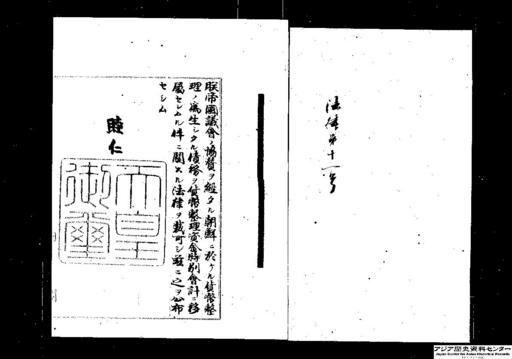 法律第十一号
朕帝國議會ノ協賛ヲ經タル朝鮮ニ於ケル貨幣整
理ノ為生シタル債務ヲ貨幣整理資金特別會計ニ移
屬セシムル件ニ關スル法律ヲ裁可シ茲ニ之ヲ公布
セシム
睦仁
天皇御璽
アジア歴史資料センター
Japan Center for Asian Historical Records